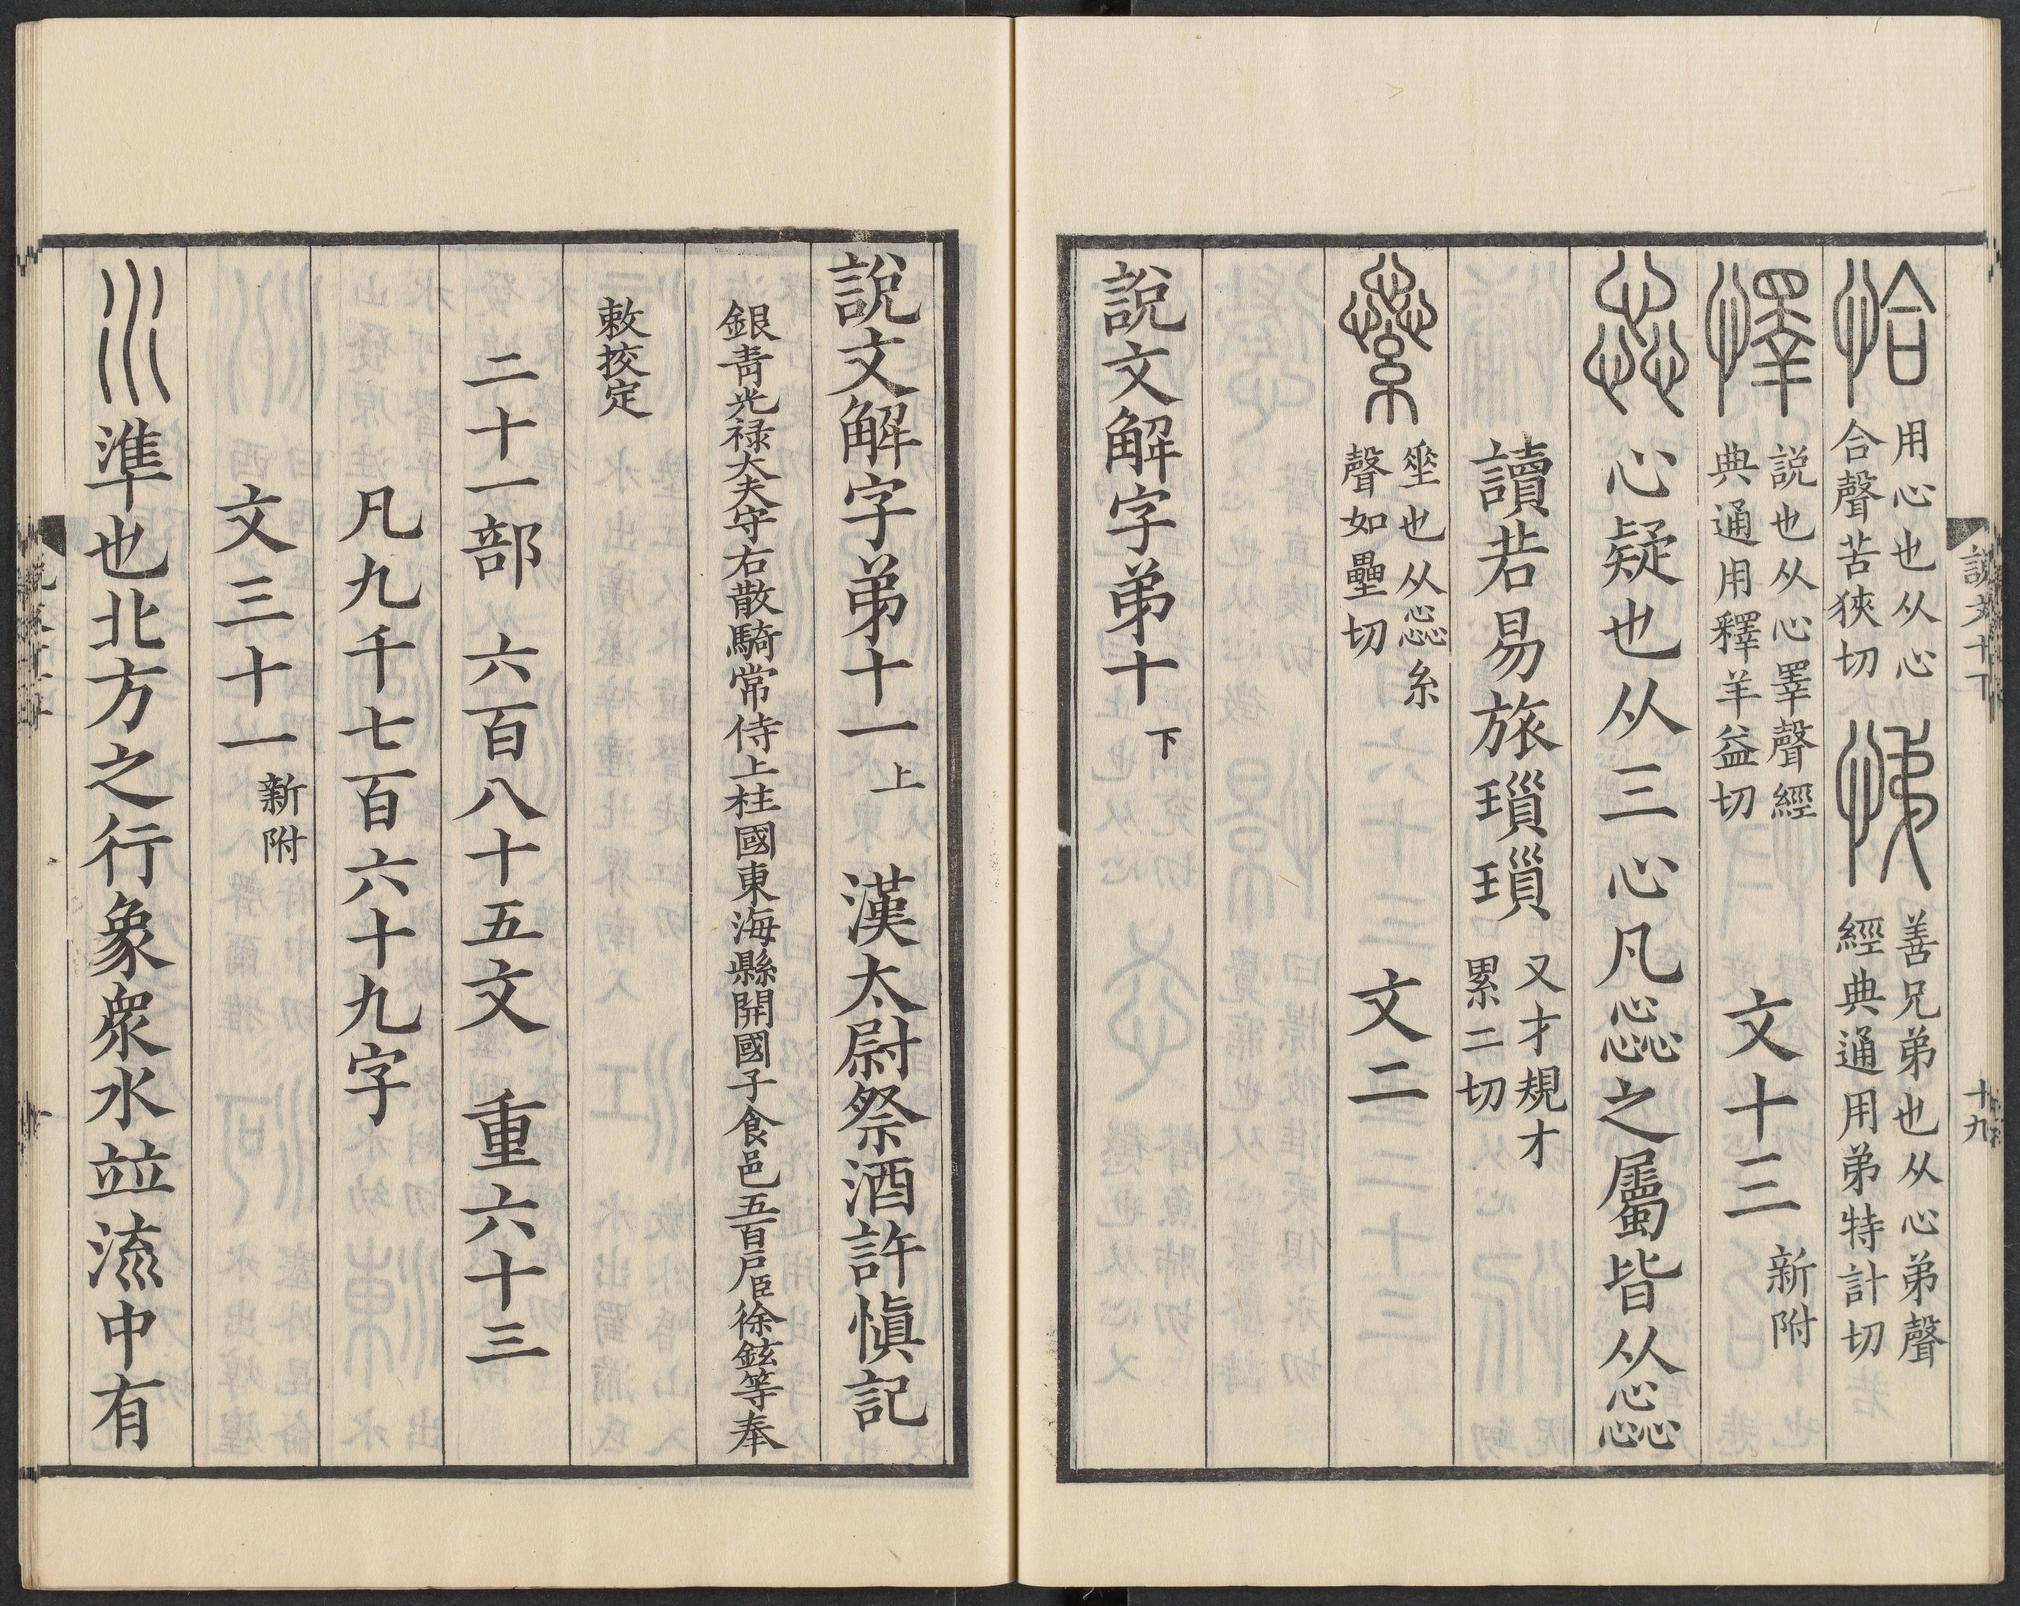 恰用心也从心
合聲苦狹切
悌善兄弟也从心弟聲
經典通用弟特計切
懌說也从心睪聲經
典通用釋羊益切
文十三新附
惢心疑也从三心凡惢之屬皆从惢
讀若易旅瑣瑣又才規才
累二切
繠𠂹也从惢糸
聲如壘切
文二
說文解字弟十下
說文十下
十九
說文解字弟十一上 漢太尉祭酒許愼記
銀青光祿大夫守右散騎常侍上柱國東海縣開國子食邑五百戶臣徐鉉等奉
敕挍定
二十一部 六百八十五文 重六十三
凡九千七百六十九字
文三十一新附
水準也北方之行象衆水竝流中有